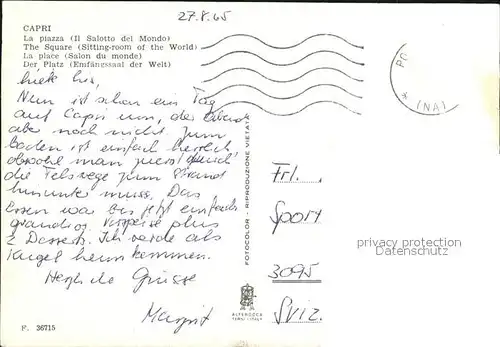 27.8.65
CAPRI
La piazza (Il Salotto del Mondo)
The Square (Sitting-room of the World)
La place (Salon du monde)
Der Platz (Emfängssaal der Welt)
Nun ist schon ein Tag
auf Capri um, der
aber noch nicht. Zum
baden ist einfach herrlich
obwohl man zuerst durch
die Felswege zum Strand
hinunter muss. Das
Essen war bis jetzt einfach
grandios. Vorspeise plus
2 Desserts. Ich werde als
Kugel heim kommen.
Herzliche Grüsse
Margrit
FOTOCOLOR - RIPRODUZIONE VIETATA
PO
(NA)
Frl.
Sporr
3095
Sviz.
privacy protection
Datenschutz
ALTEROCCA
TERNI-ITALY
F. 36715